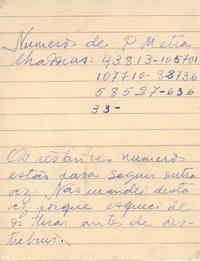 Numeros de P. Metra
lhadoras: 43813-105701
107710-88736
58527-636
33-
Os restantes numeros
estão para seguir outra
vez. Nas mandei desta
vez porque esqueci de
os tirar antes de dis-
tribuir.